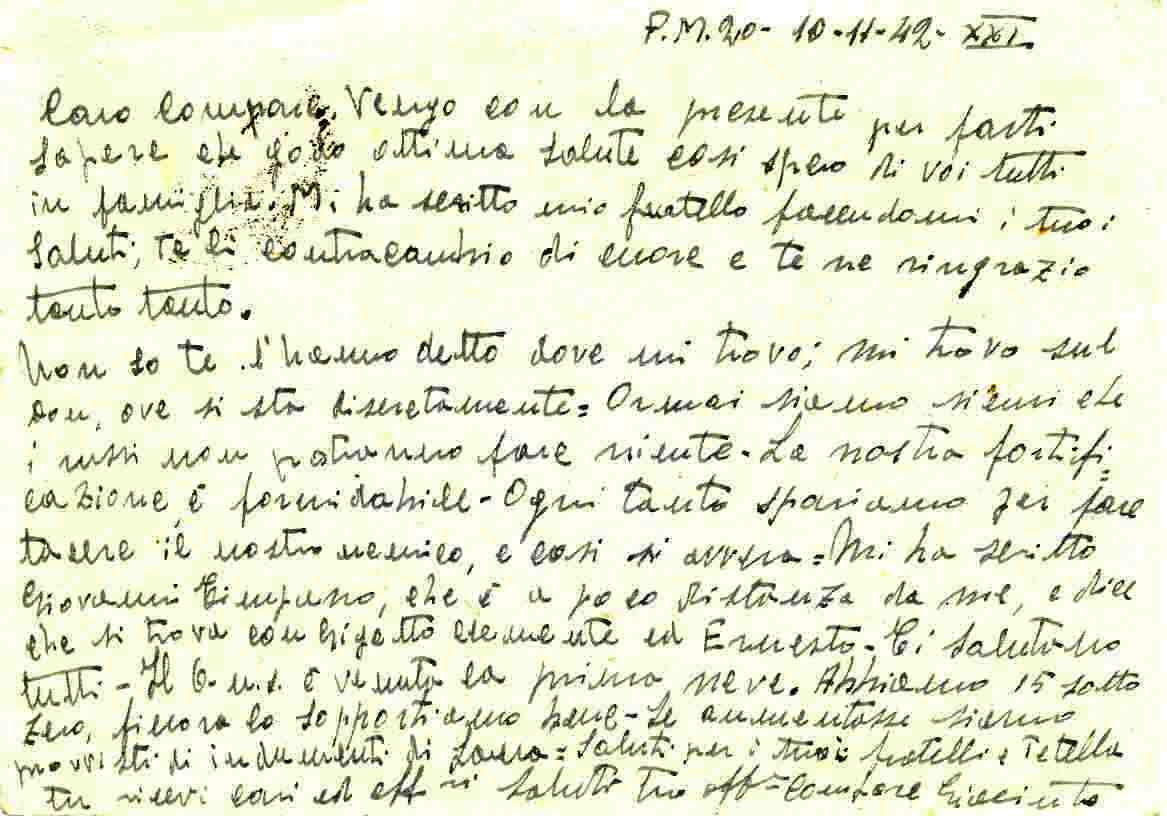 P.M. 20 - 10-11-42- XXI
Caro Compare, Vengo con la presente per farti
sapere che godo ottima salute così spero di voi tutti
in famiglia. Mi ha scritto mio fratello facendomi i tuoi
saluti, te li contracambio di cuore e te ne ringrazio
tanto tanto.
Non so te l'hanno detto dove mi trovo; mi trovo sul
Don, ove si sta discretamente = Ormai siamo sicuri che
i russi non potranno fare niente - La nostra fortifi=
cazione è formidabile - Ogni tanto spariamo per fare
tacere il nostro nemico, e così si avvera = Mi ha scritto
Giovanni Cimpano, che è a poco distanza da me, e dice
che si trova con Gigetto Clemente ed Ernesto - Ci salutano
tutti - Il 6 u.s. è venuta la prima neve. Abbiamo 15 sotto
zero, finora lo sopportiamo bene - Se aumentasse siamo
provvisti di indumenti di lana = Saluti per i tuoi fratelli e Tetella
tu ricevi cari ed aff.ni saluti tuo aff.mo Compare Giacinto